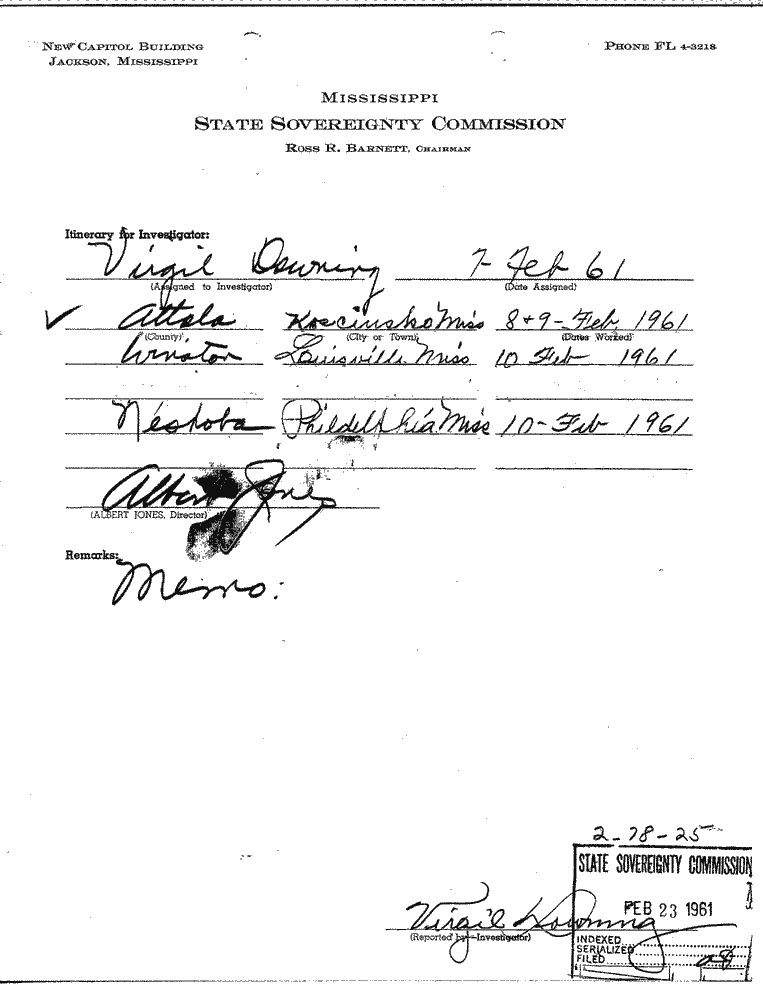 NEW CAPITOL BUILDING PHONE FL 4-3218
JACKSON, MISSISSIPPI
MISSISSIPPI
STATE SOVEREIGNTY COMMISSION
ROSS R. BARNETT, CHAIRMAN
Itinerary for Investigator:
Virgil Downing 7 Feb 61
(Assigned to Investigator) (Date Assigned)
✓ Attala Kosciusko Miss 8+9-Feb 1961
(County) (City or Town) (Dates Worked)
Winston Louisville Miss 10 Feb 1961
Neshoba Phildelthia Miss 10-Feb 1961
Albert Jones
(ALBERT JONES, Director)
Remarks:
Memo:
2-78-25
STATE SOVEREIGNTY COMMISSION
FEB 23 1961
Virgil Downing
(Reported by-Investigator)
INDEXED
SERIALIZED
FILED